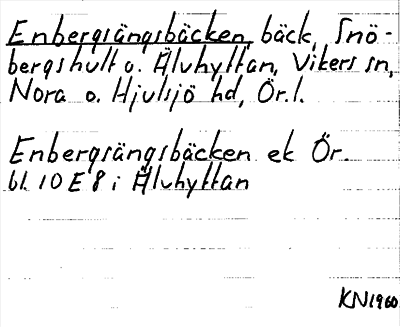 Enbergsängsbäcken, bäck, Snö-
bergshult o. Älvhyttan, Vikers sn,
Nora o. Hjulsjö hd, Ör. l.
Enbergsängsbäcken ek Ör.
bl. 10 E 8 i Älvhyttan
KN 1960